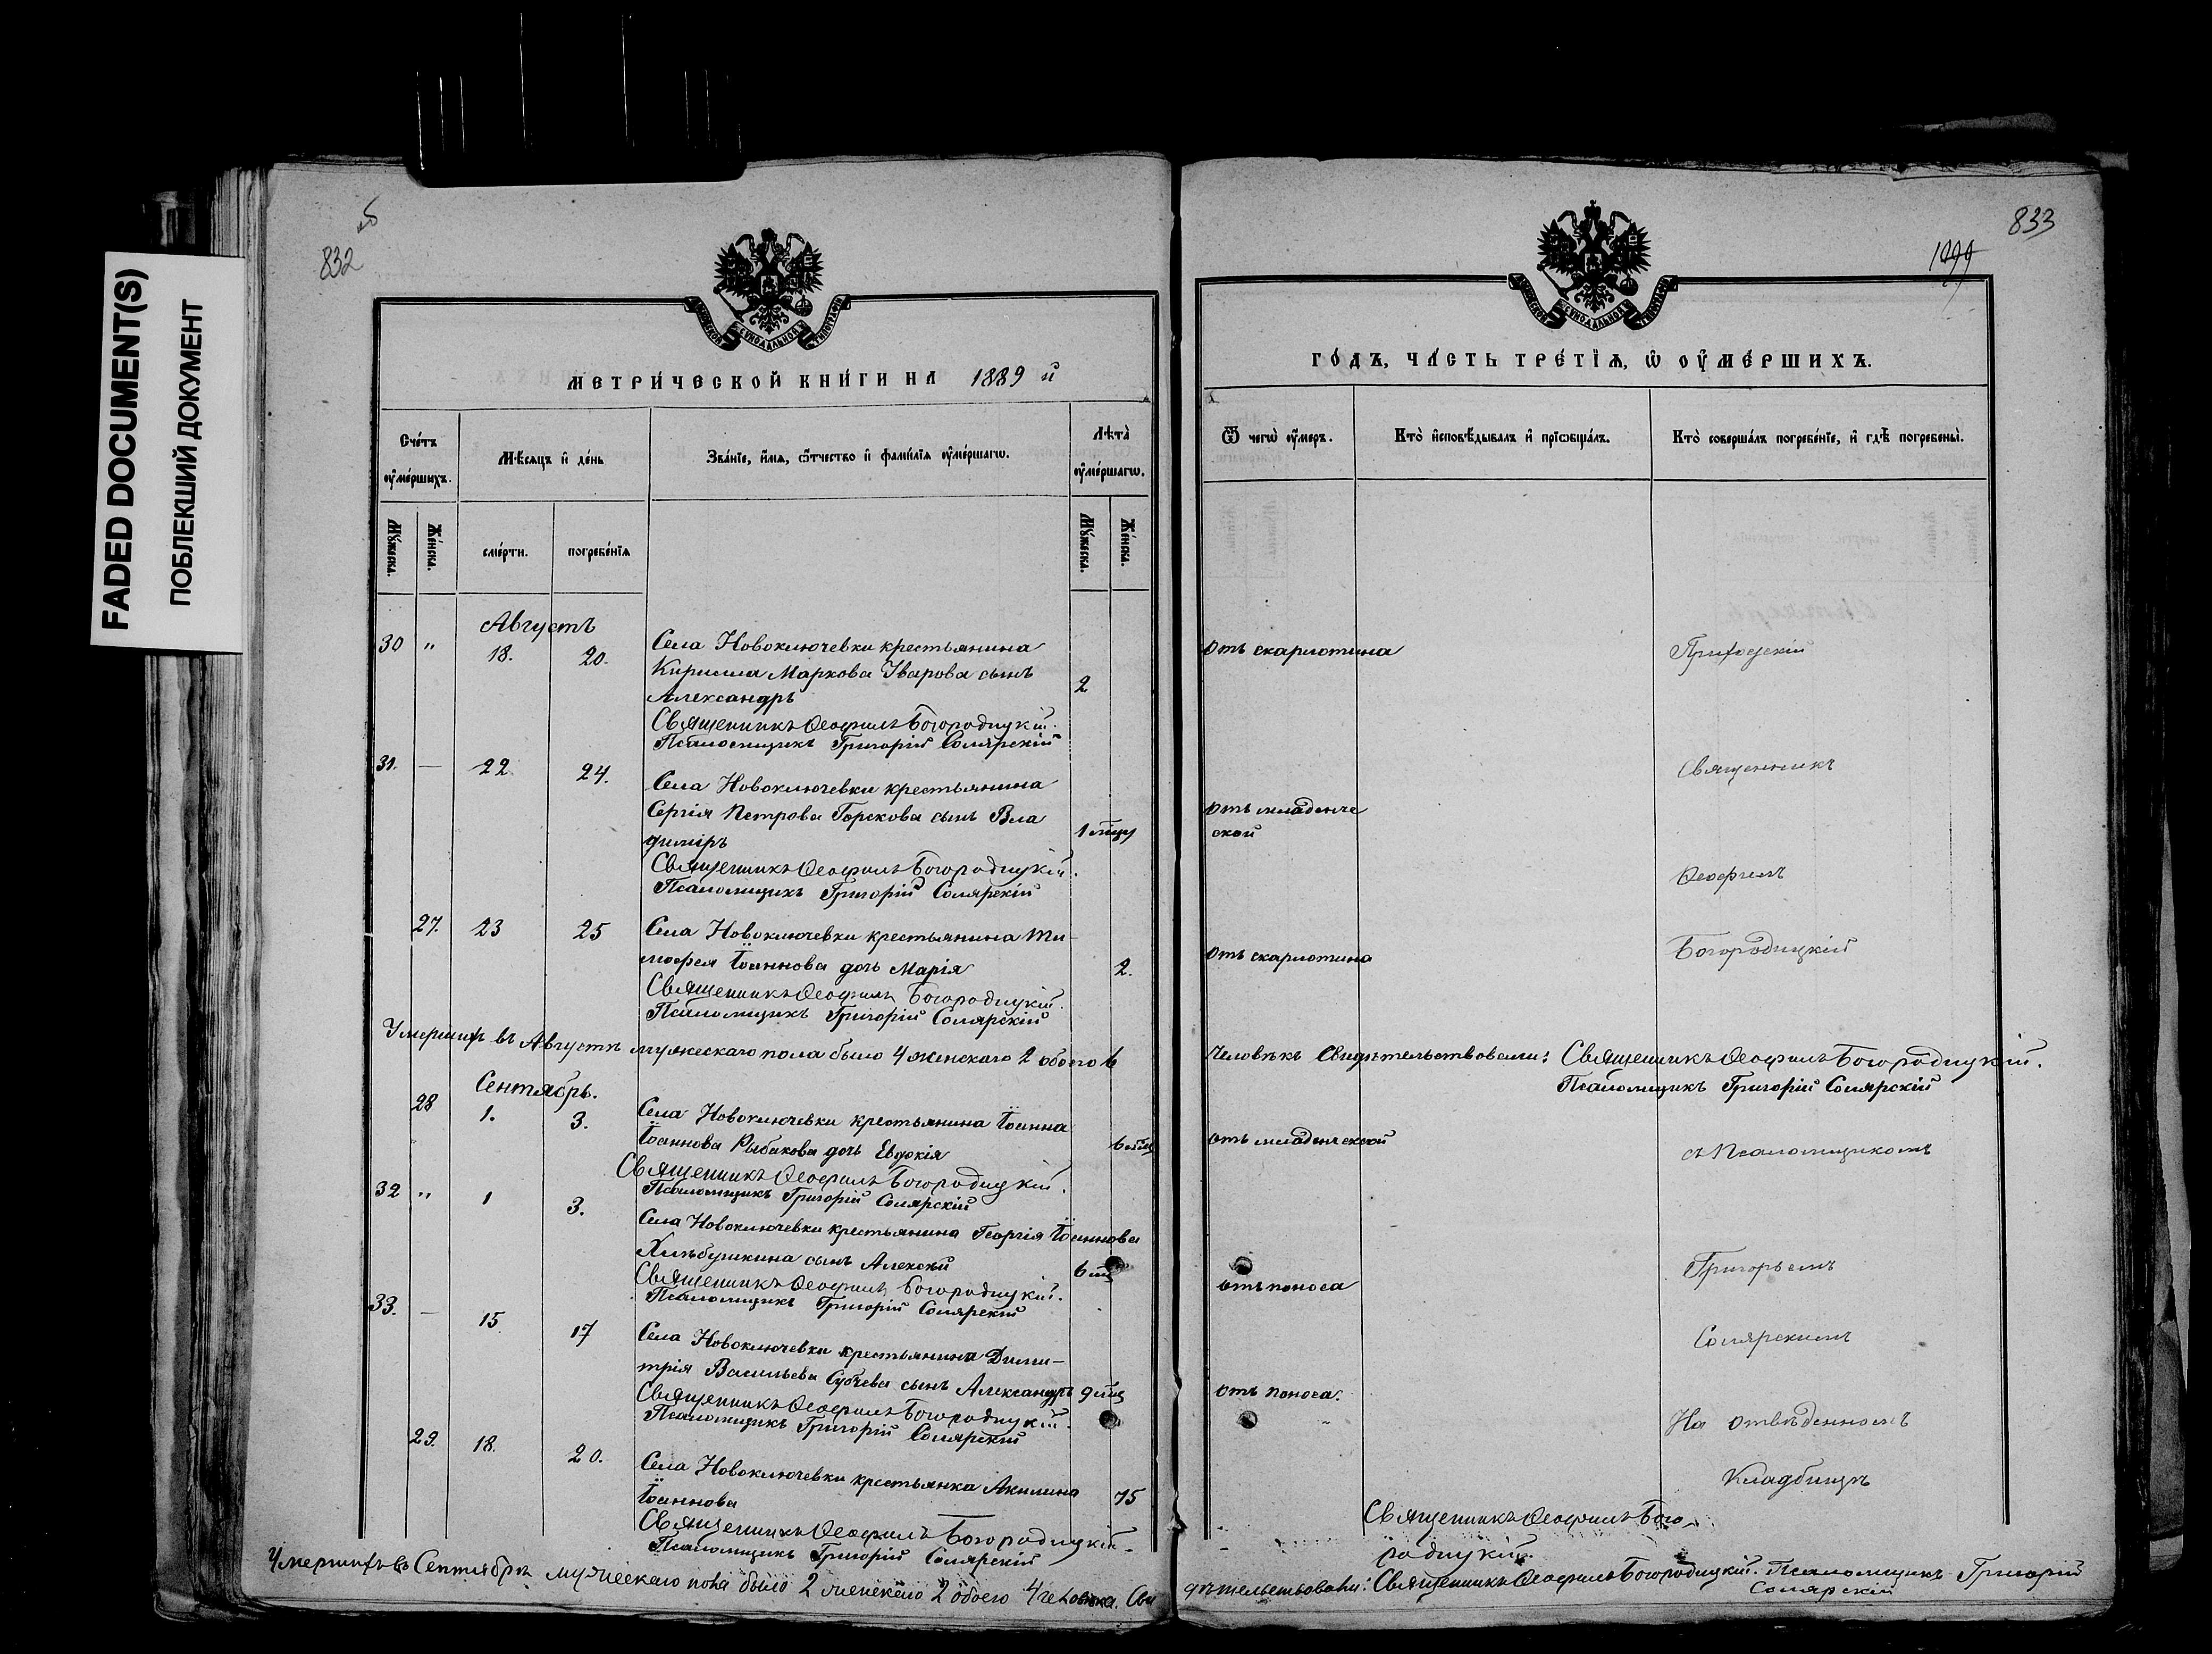 FADED DOCUMENT(S)
ПОБЛЕКШИЙ ДОКУМЕНТ
832
МЕТРИ́ЧЕСКОЙ КНИ́ГИ НА 1889 й
Сче́тъ ᲂу҆ме́ршихъ.
Мѣ́сяцъ и҆ де́нь
Зва́нїе, и҆́мя, ѻ҆́тчество и҆ фами́лїя ᲂу҆ме́ршагѡ.
Лѣта̀ ᲂу҆ме́ршагѡ.
Мꙋ́жеска.
Же́нска.
сме́рти.
погребе́нїя
Мꙋ́жеска.
Же́нска.
Августъ
30 " 18. 20. Села Новоключевки крестьянина
Кирилла Маркова Уварова сынъ 2
Александръ
Священникъ Ѳеофилъ Богородицкій.
Псаломщикъ Григорій Солярскій
31. — 22 24. Села Новоключевки крестьянина
Сергія Петрова Горскова сынъ Вла
диміръ 1 мцъ
Священникъ Ѳеофилъ Богородицкій.
Псаломщикъ Григорій Солярскій
27. 23 25 Села Новоключевки крестьянина Ти-
моѳея Іоаннова дочь Марія 2.
Священникъ Ѳеофилъ Богородицкій.
Псаломщикъ Григорій Солярскій
Умершихъ въ Августѣ мужескаго пола было 4 женскаго 2 обоего 6
Сентябрь.
28 1. 3. Села Новоключевки крестьянина Іоанна
Іоаннова Рыбакова дочь Евдокія 6 мцъ
Священникъ Ѳеофилъ Богородицкій.
Псаломщикъ Григорій Солярскій
32 " 1 3.
Села Новоключевки крестьянина Георгія Іоаннова
Хлѣбушкина сынъ Алексѣй 6 мц
Священникъ Ѳеофилъ Богородицкій.
Псаломщикъ Григорій Солярскій
33. — 15. 17 Села Новоключевки крестьянина Дими-
трія Васильева сынъ Александръ 9 мцъ
Священникъ Ѳеофилъ Богородицкій.
Псаломщикъ Григорій Солярскій
29. 18. 20. Села Новоключевки крестьянка Акилина
Іоаннова 75
Священникъ Ѳеофилъ Богородицкій
Псаломщикъ Григорій Солярскій
Умершихъ въ Сентябрѣ мужескаго пола было 2 женскаго 2 обоего 4 человѣка. Сви
833
1099
ГО́ДЪ, ЧА́СТЬ ТРЕ́ТЇѦ, Ѡ҆ ОУ҆МЕ́РШИХЪ.
Ѿ чегѡ̀ ᲂу҆́меръ.
Кто̀ и҆сповѣ́дывалъ и҆ прїѡбща́лъ.
Кто̀ соверша́лъ погребе́нїе, и҆ гдѣ̀ погребены̀.
отъ скарлотина
Приходскій
Священникъ
отъ младенче
ской
Ѳеофилъ
отъ скарлотина
Богородицкій
Человѣкъ Свидѣтельствовали: Священникъ Ѳеофилъ Богородицкій.
Псаломщикъ Григорій Солярскій
отъ младенческой
съ Псаломщикомъ
Григорьемъ
отъ поноса
Солярскимъ
отъ поноса.
На отвѣденномъ
Кладбищѣ
Священникъ Ѳеофилъ Бого
родицкій.
дѣтельствовали: Священникъ Ѳеофилъ Богородицкій. Псаломщикъ Григорій
Солярскій